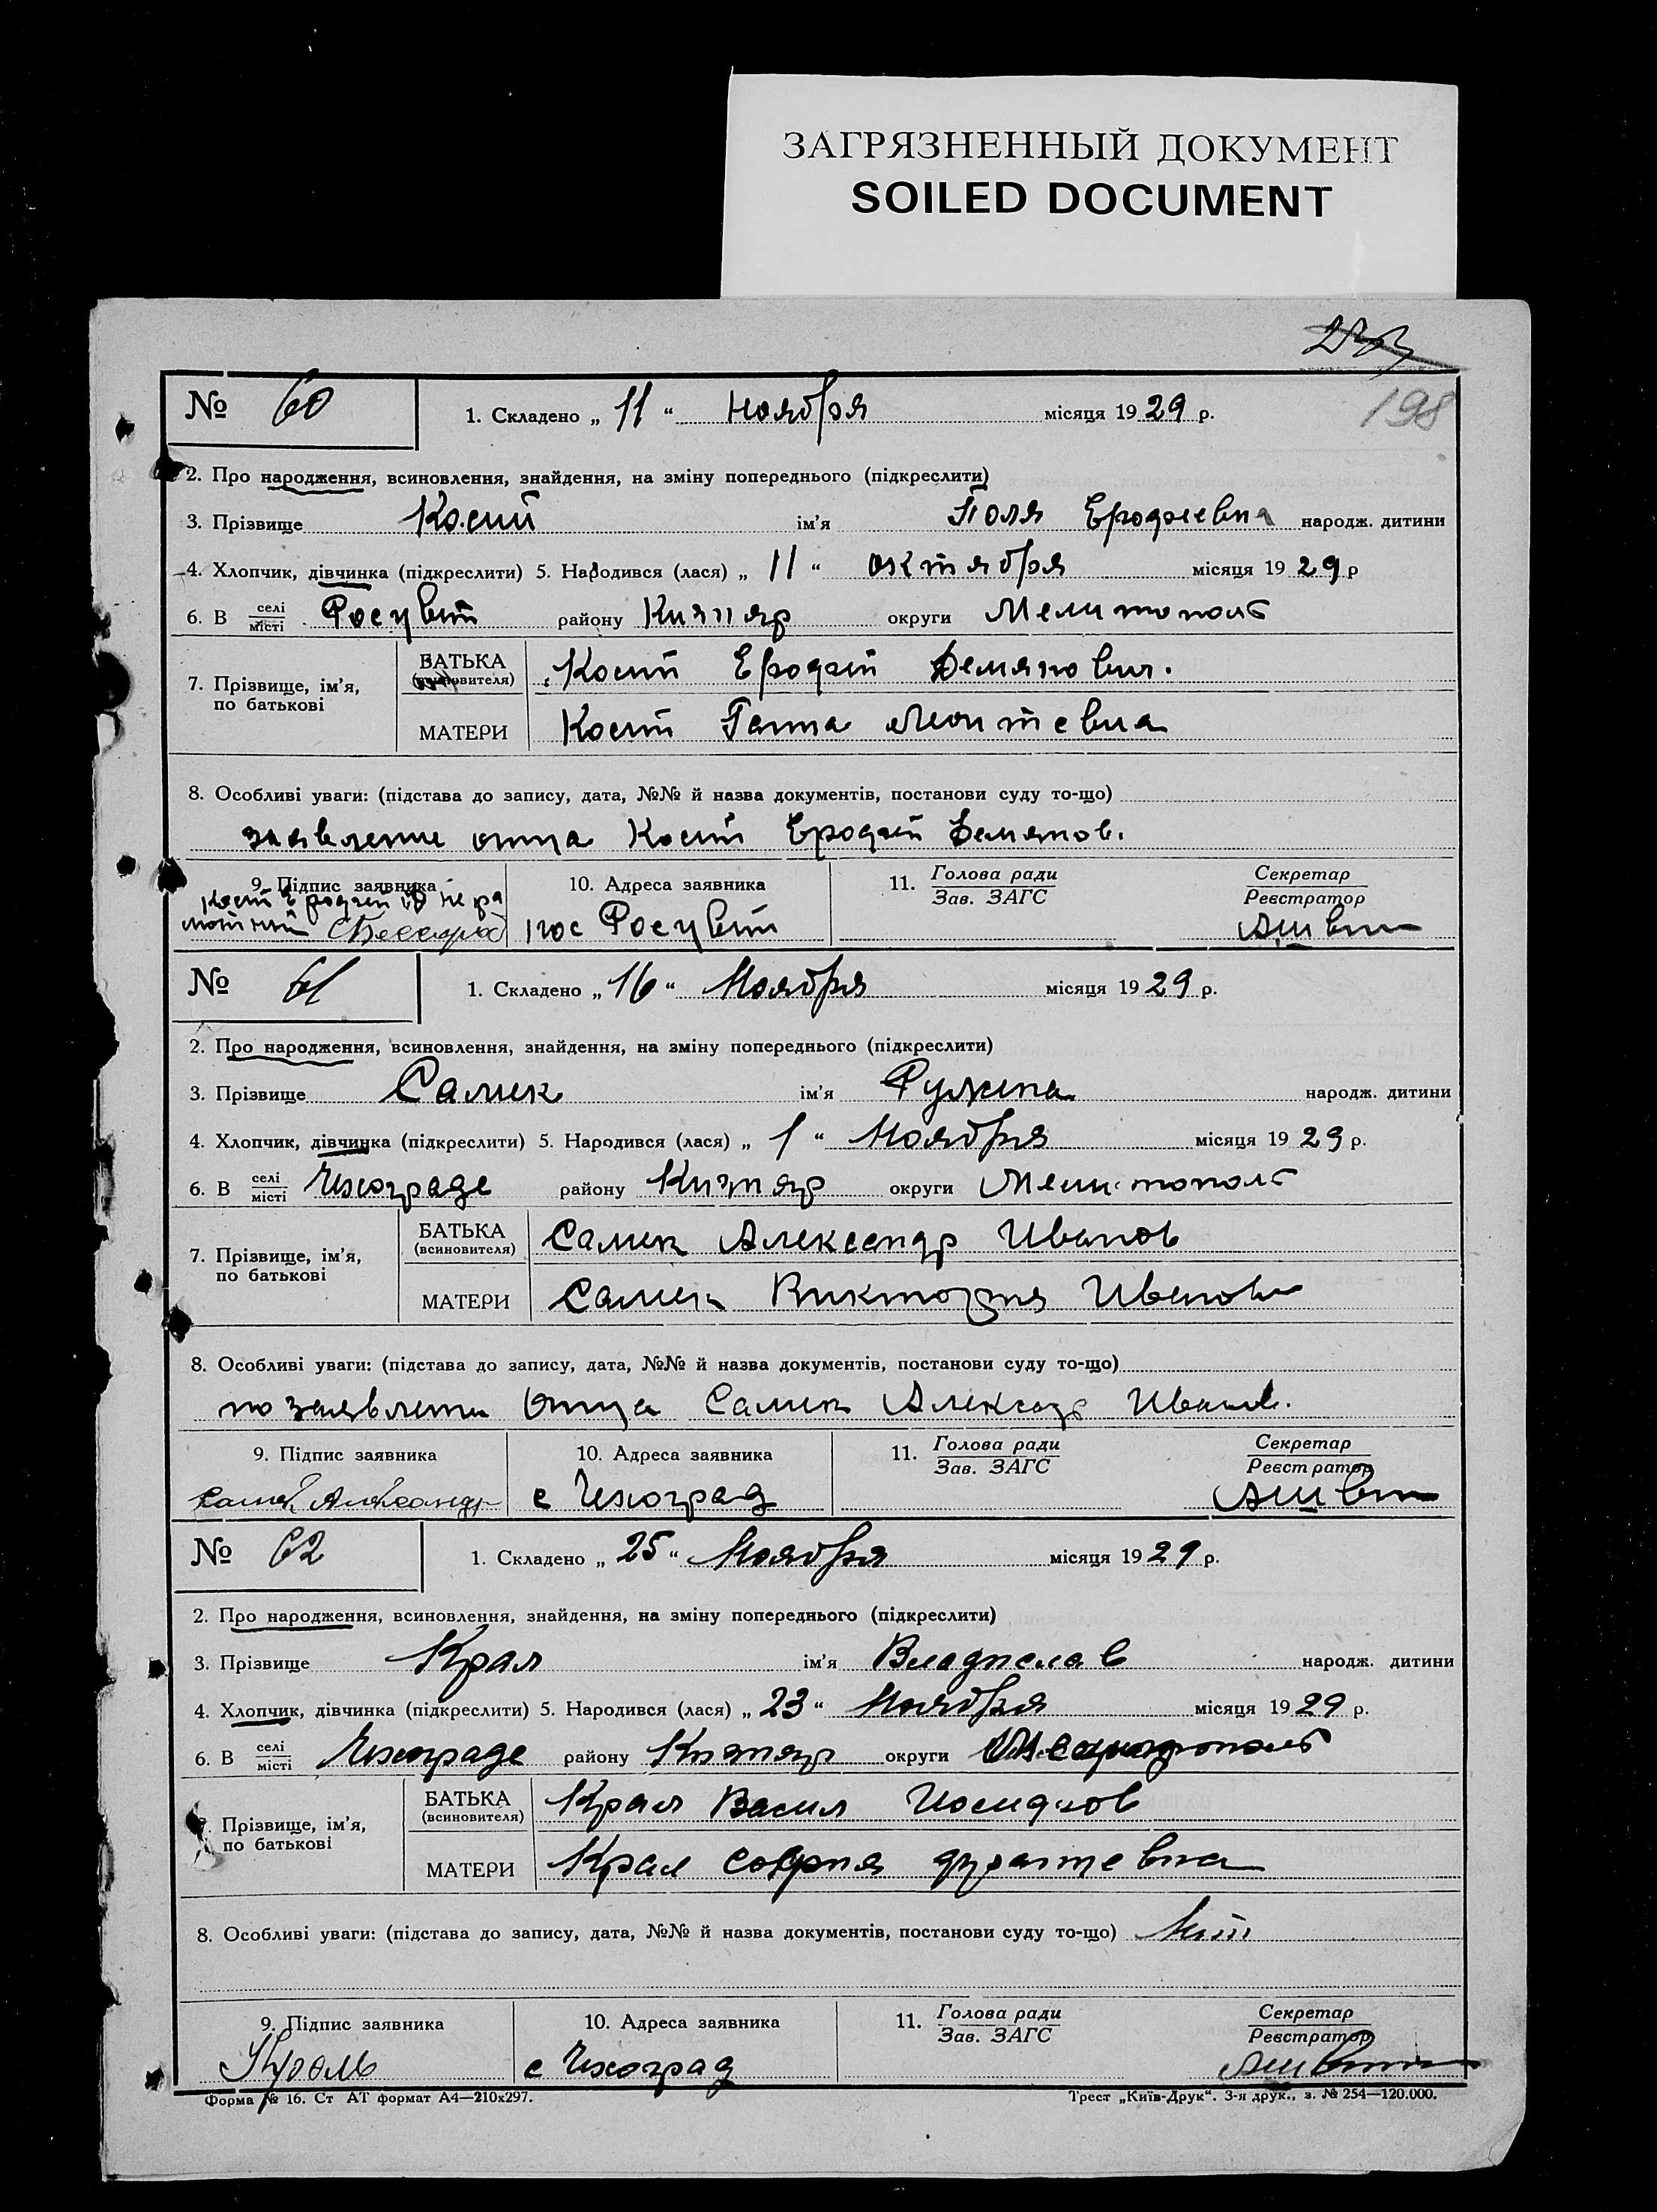 ЗАГРЯЗНЕННЫЙ ДОКУМЕНТ
SOILED DOCUMENT
198
№ 60 1. Складено „ 11 “ Ноября місяця 1929 р.
2. Про народження, всиновлення, знайдення, на зміну попереднього (підкреслити)
3. Прізвище ім'я Поля народж. дитини
4. Хлопчик, дівчинка (підкреслити) 5. Народився (лася) „ 11 “ октября місяця 1929 р
6. В селі місті Росцвет району Кизияр округи Мелитополь
7. Прізвище, ім'я, по батькові
БАТЬКА (всиновителя) Демянович.
МАТЕРИ Ганна
8. Особливі уваги: (підстава до запису, дата, №№ й назва документів, постанови суду то-що)
заявление отца Демянов.
9. Підпис заявника 10. Адреса заявника 11. Голова ради Зав. ЗАГС Секретар Реєстратор
пос Росцвет
№ 61 1. Складено „ 16 “ Ноября місяця 1929 р.
2. Про народження, всиновлення, знайдення, на зміну попереднього (підкреслити)
3. Прізвище Самек ім'я Ружена народж. дитини
4. Хлопчик, дівчинка (підкреслити) 5. Народився (лася) „ 1 “ Ноября місяця 1929 р.
6. В селі місті Чехограде району Кизияр округи Мелитополь
7. Прізвище, ім'я, по батькові
БАТЬКА (всиновителя) Самек Александр Иванов
МАТЕРИ Самек Виктория
8. Особливі уваги: (підстава до запису, дата, №№ й назва документів, постанови суду то-що)
по заявлени Отца Самек Иванов.
9. Підпис заявника 10. Адреса заявника 11. Голова ради Зав. ЗАГС Секретар Реєстратор
Александр с Чехоград
№ 62 1. Складено „ 25 “ Ноября місяця 1929 р.
2. Про народження, всиновлення, знайдення, на зміну попереднього (підкреслити)
3. Прізвище Крал ім'я Владислав народж. дитини
4. Хлопчик, дівчинка (підкреслити) 5. Народився (лася) „ 23 “ Ноября місяця 1929 р.
6. В селі місті Чехограде району Кизияр округи
7. Прізвище, ім'я, по батькові
БАТЬКА (всиновителя) Крал Васил
МАТЕРИ Крал София
8. Особливі уваги: (підстава до запису, дата, №№ й назва документів, постанови суду то-що)
9. Підпис заявника 10. Адреса заявника 11. Голова ради Зав. ЗАГС Секретар Реєстратор
с Чехоград
Форма № 16. Ст АТ формат А4—210x297. Трест „Київ-Друк“. 3-я друк., з. № 254—120.000.